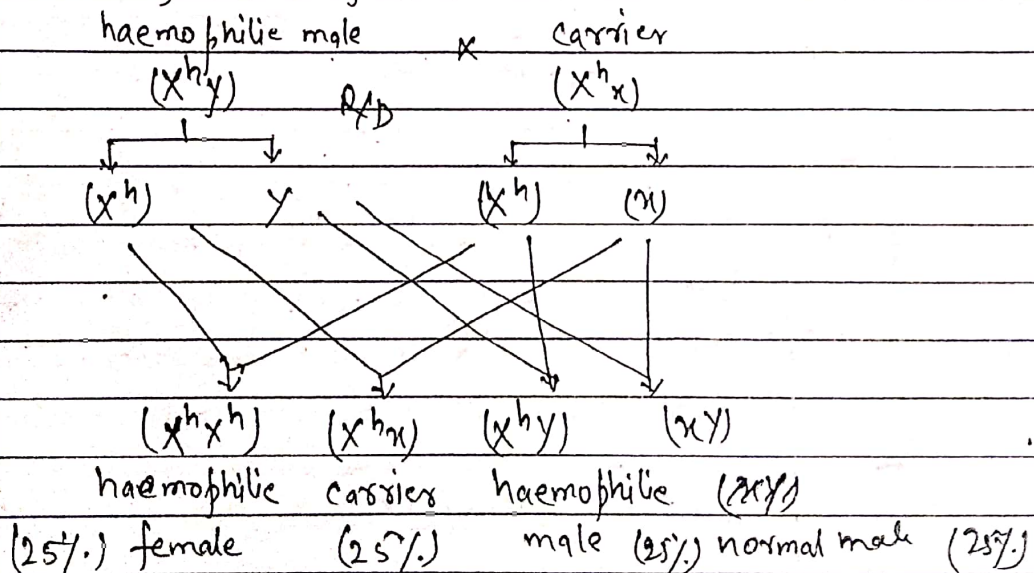 haemophilic male × carrier
(XʰY) R/D (Xʰx)
(Xʰ) Y (Xʰ) (x)
(XʰXʰ) (Xʰx) (XʰY) (xY)
haemophilic carrier haemophilic (xY)
(25%.) female (25%.) male (25%.) normal male (25%.)